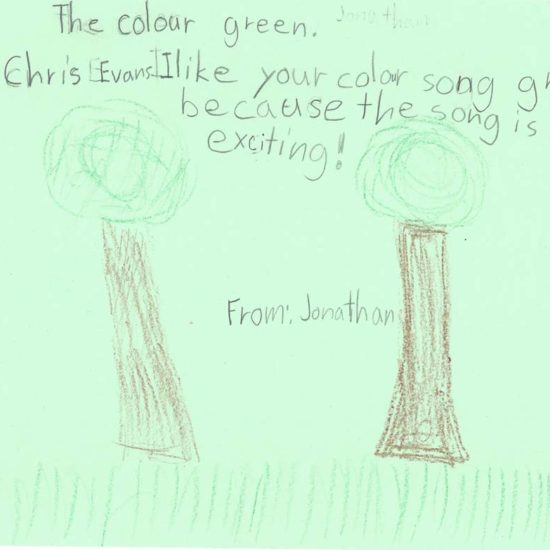 The colour green. Jonathan
Chris Evans I like your colour song gr
because the song is
exciting!
From: Jonathan